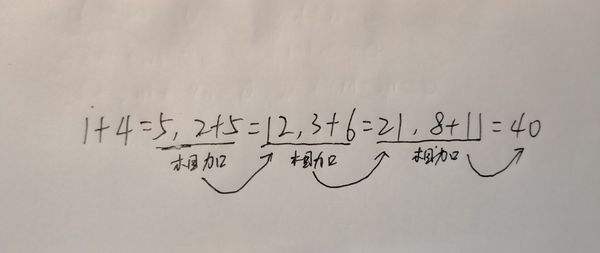 1+4=5, 2+5=12, 3+6=21, 8+11=40
相加 相加 相加